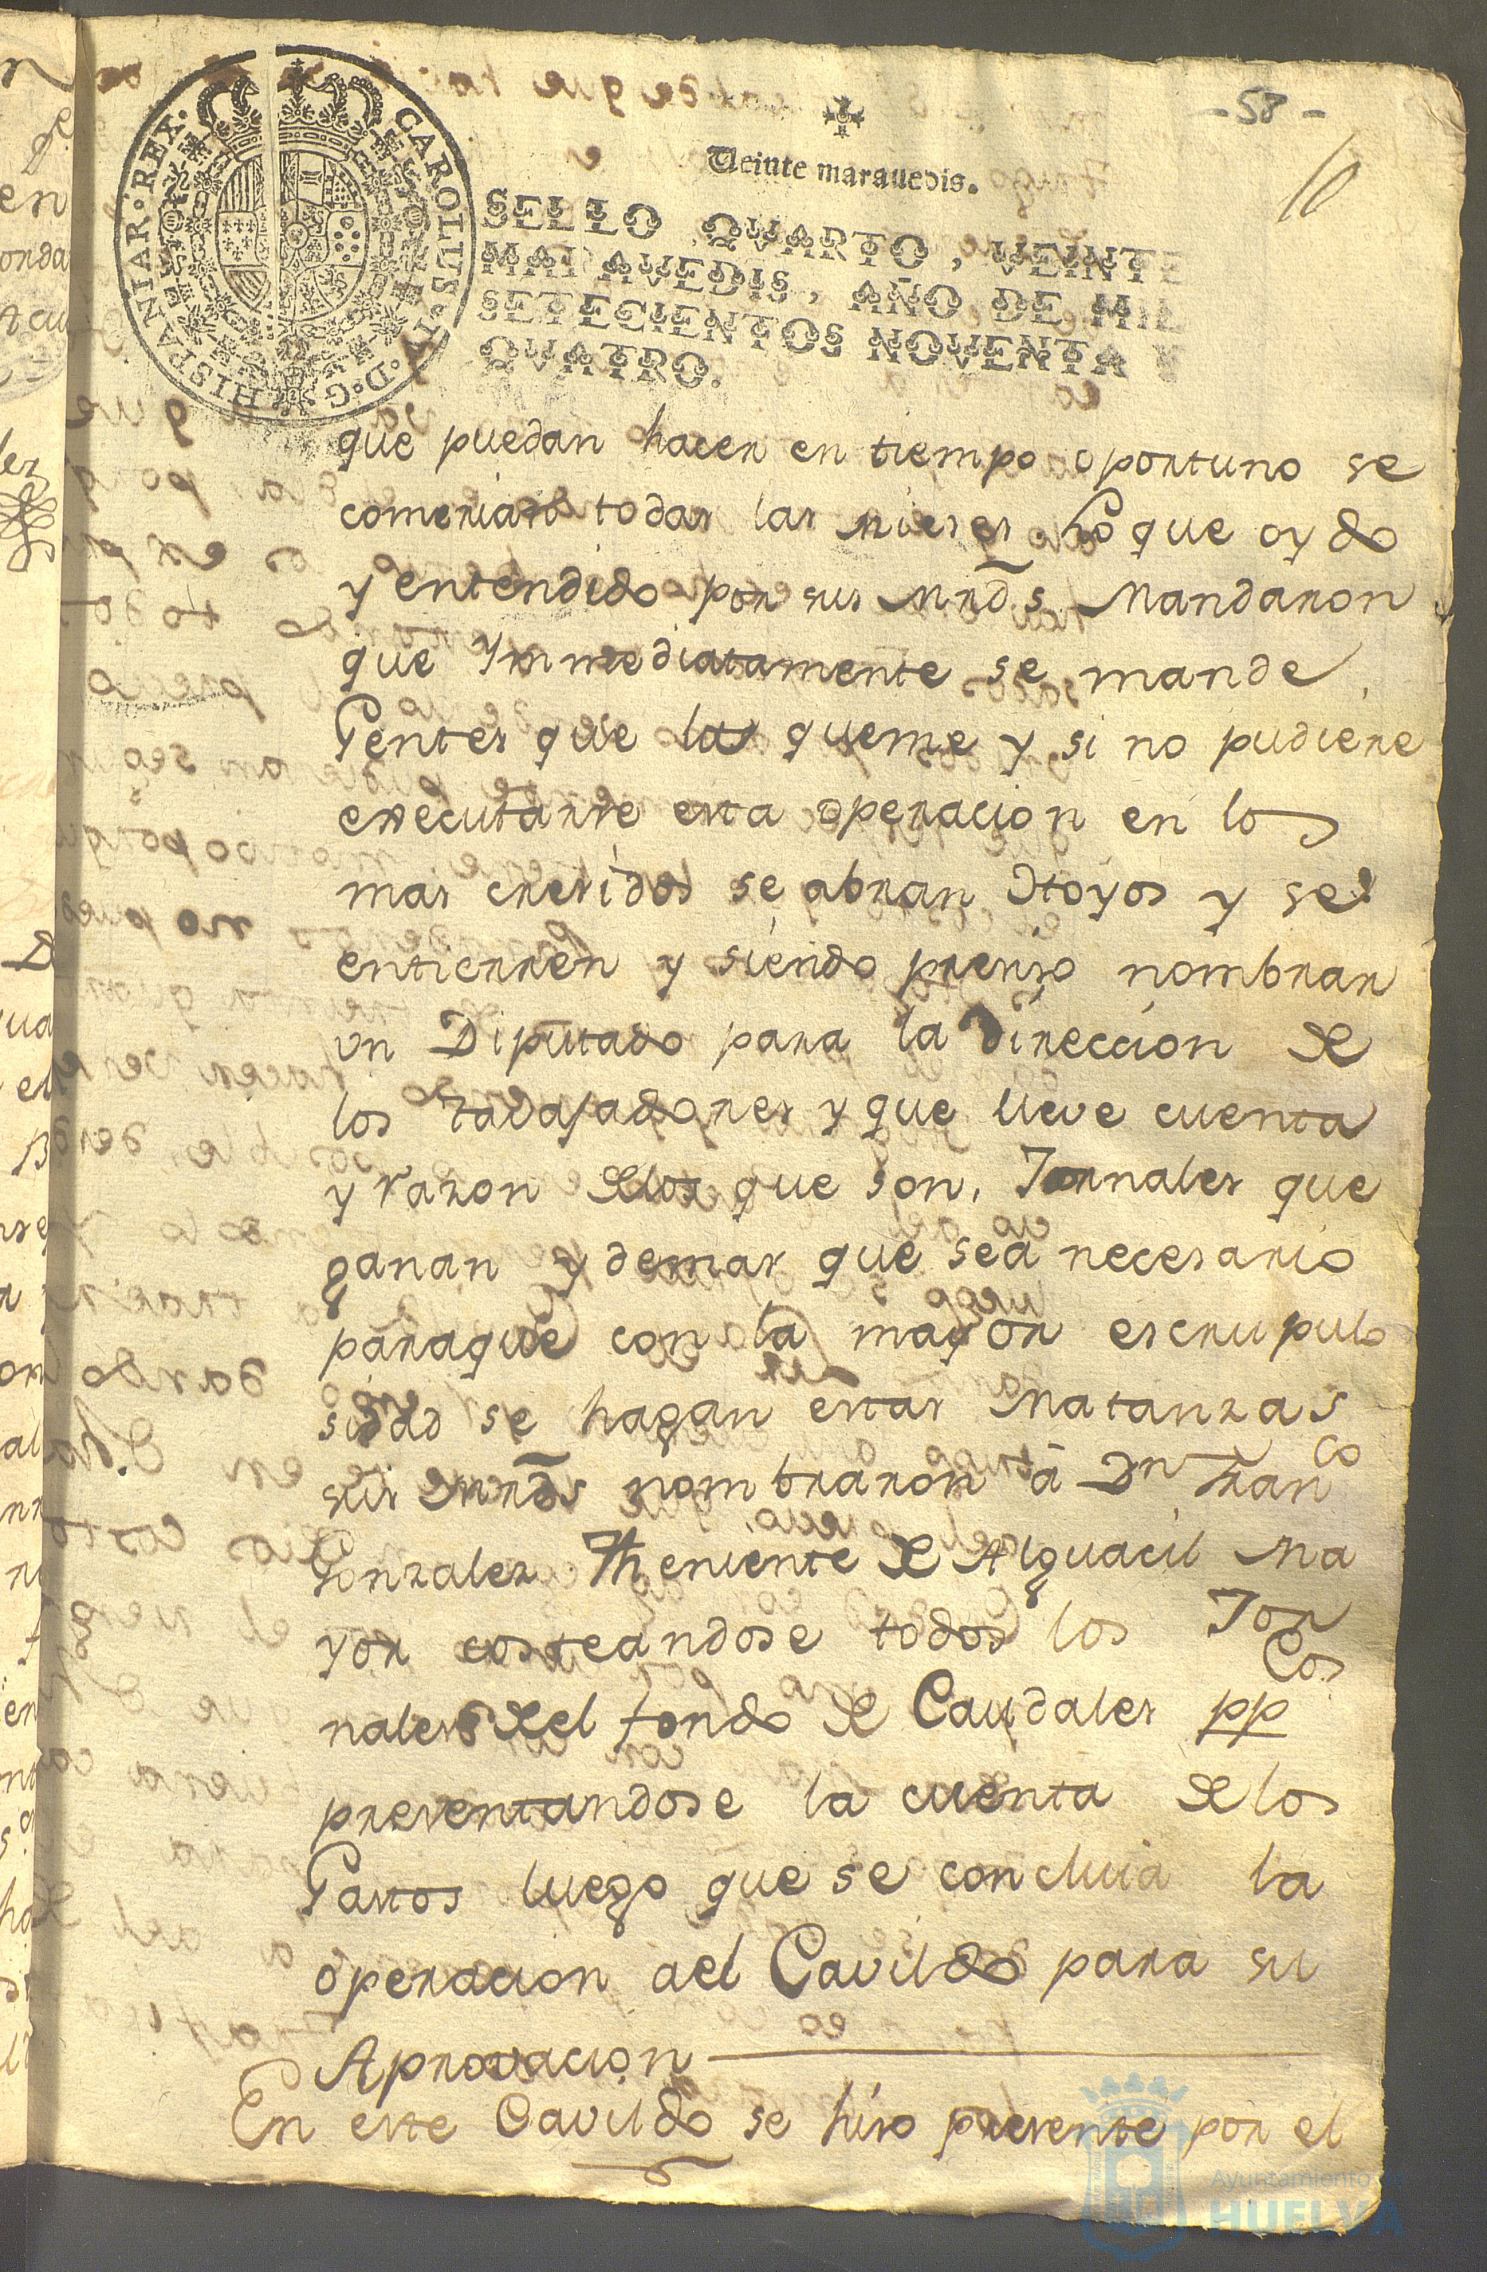 - 58 -
10
CAROLUS · IV · D · G · HISPANIAR · REX ·
Veinte marauedis.
SELLO QVARTO, VEINTE
MARAVEDIS, AÑO DE MIL
SETECIENTOS NOVENTA Y
QVATRO.
que puedan hacer en tiempo oportuno se
comerian todas las mieses Lo que oydo
y entendido por sus Mrds. Mandaron
que Ynmediatamente se mande
Gentes que la queme y si no pudiere
executarse esta operacion en los
mas cresidos se abran Hoyos y se
entierren y siendo presiso nombrar
un Diputado para la direccion de
los Trabajadores y que lleve cuenta
y razon delos que son, Jornales que
ganan y demas que sea necesario
paraque con la mayor escrupulo
sidad se hagan estas Matanzas
sus Mrds nombraron â Dn Franco
Gonzalez Theniente de Alguacil Ma
yor costeandose todos los Jor
nales del fondo de Caudales ppcos
presentandose la cuenta delos
Gastos luego que se concluia la
operacion ael Cavildo para su
Aprovacion
En este Cavildo se hiso presente por el
Ayuntamiento de
HUELVA